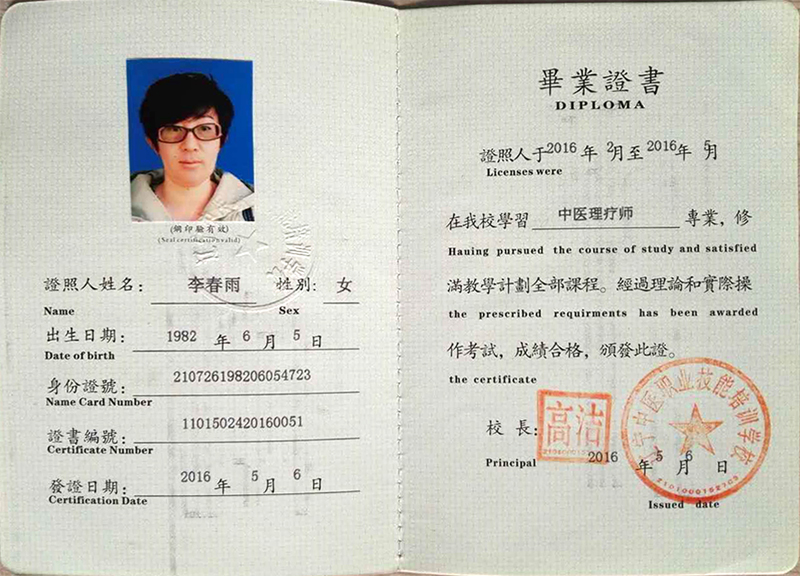 (鋼印驗有效)
(Seal certification valid)
證照人姓名: 李春雨 性别: 女
Name Sex
出生日期: 1982 年 6 月 5 日
Date of birth
身份證號: 210726198206054723
Name Card Number
證書編號: 1101502420160051
Certificate Number
發證日期: 2016 年 5 月 6 日
Certification Date
畢業證書
DIPLOMA
證照人于2016 年 2月至 2016年 5月
Licenses were
在我校學習 中医理疗师 專業，修
Hauing pursued the course of study and satisfied
滿教學計劃全部課程。經過理論和實際操
the prescribed requirments has been awarded
作考試，成績合格，頒發此證。
the certificate
校長: 高洁
Principal 2016 年 5 月 6 日
中医职业技能培训学校
Issued date